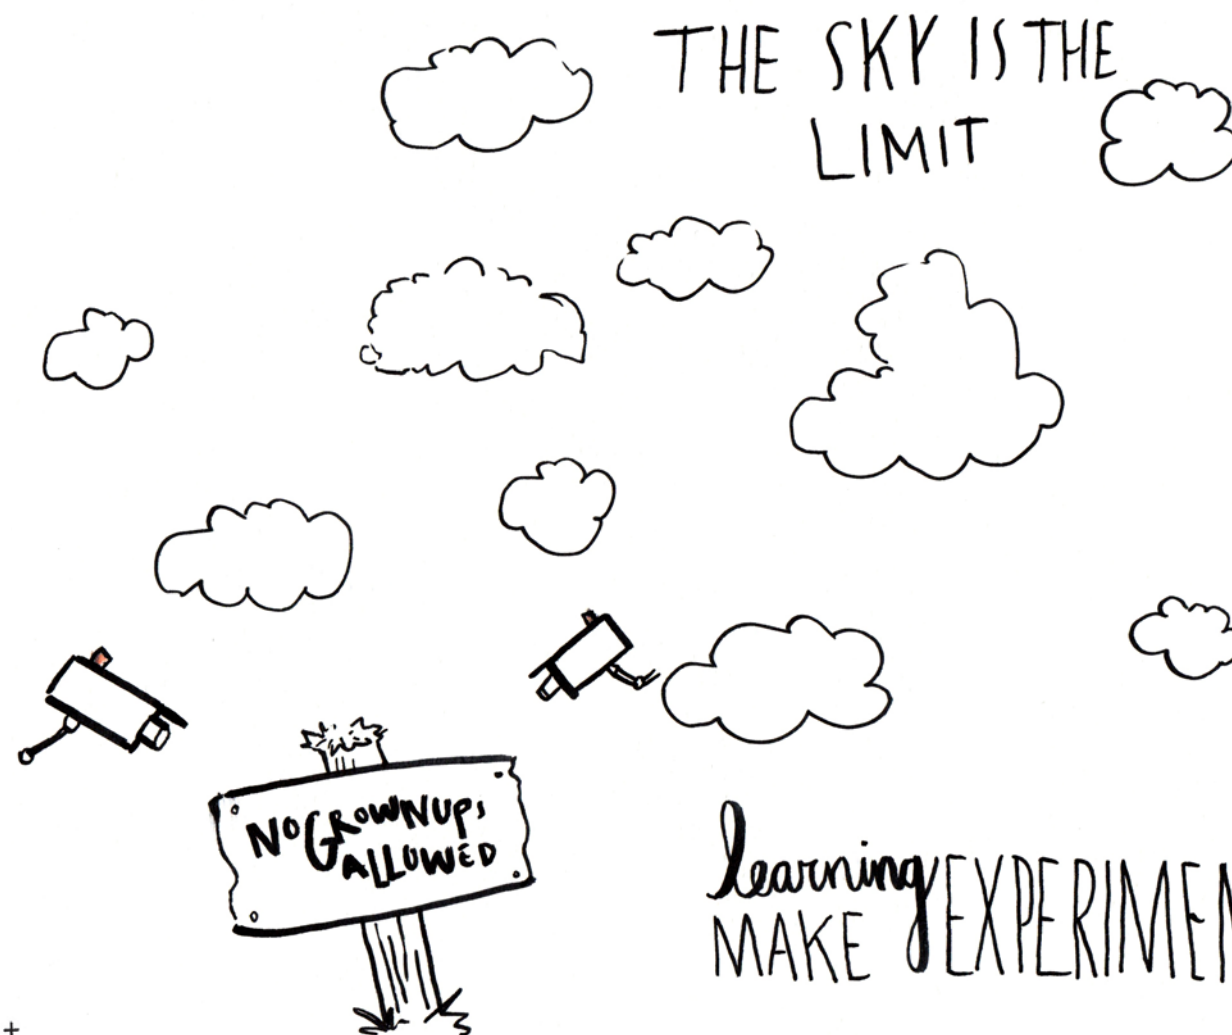 THE SKY IS THE
LIMIT
NO GROWNUPS
ALLOWED
learning
MAKE EXPERIMEN